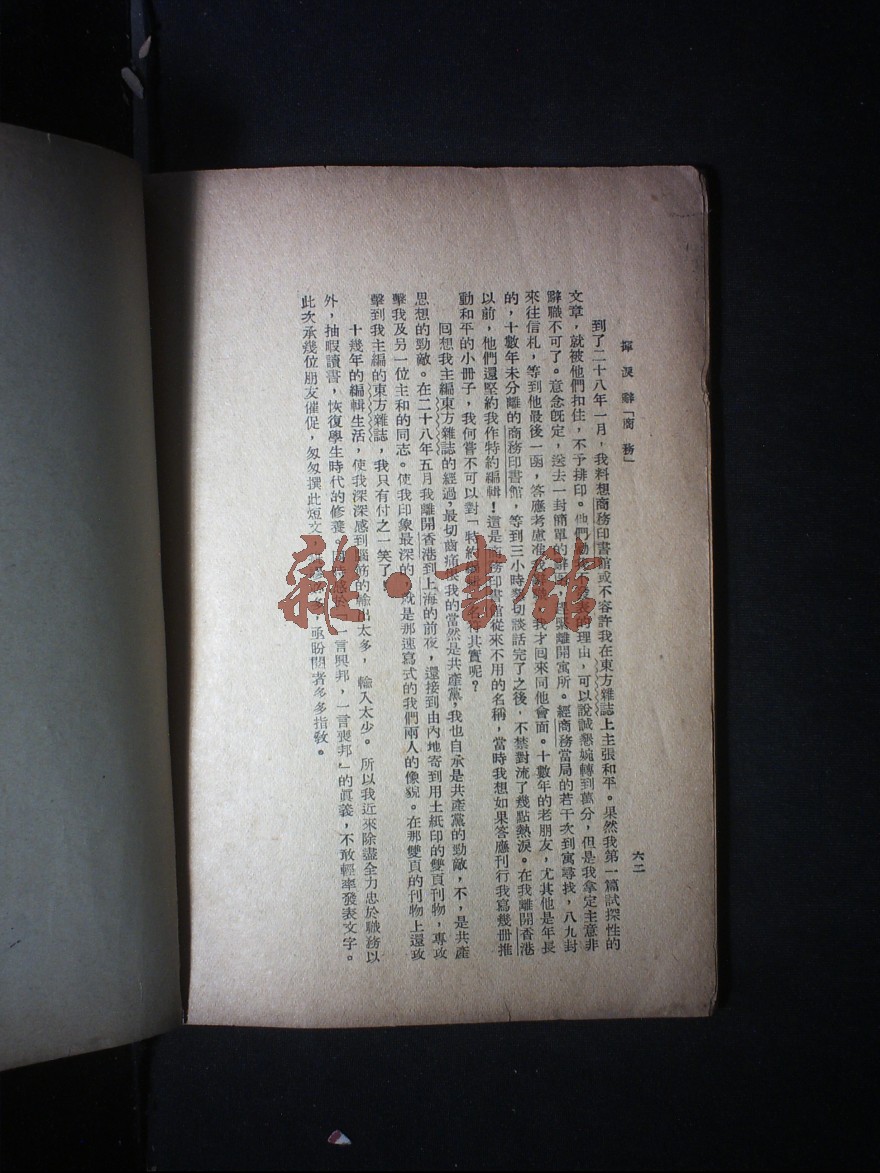 揮淚辭「商務」
六二
到了二十八年一月，我料想商務印書館或不容許我在東方雜誌上主張和平。果然我第一篇試探性的
文章，就被他們扣住，不予排印。他們勸我不發表的理由，可以說誠懇婉轉到萬分，但是我拿定主意非
辭職不可了。意念旣定，送去一封簡單的辭職離開寓所。經商務當局的若干次到寓尋找，八九封
來往信札，等到他最後一函，答應考慮准我我才回來同他會面。十數年的老朋友，尤其他是年長
的，十數年未分離的商務印書館，等到三小時切談話完了之後，不禁對流了幾點熱淚。在我離開香港
以前，他們還堅約我作特約編輯！這是商務印書館從來不用的名稱，當時我想如果答應刊行我寫幾冊推
動和平的小冊子，我何嘗不可以對「特約其實呢？
回想我主編東方雜誌的經過，最切齒痛恨我的當然是共產黨，我也自承是共產黨的勁敵，不，是共產
思想的勁敵。在二十八年五月我離開香港到上海的前夜，還接到由內地寄到用土紙印的雙頁刊物，專攻
擊我及另一位主和的同志。使我印象最深的，就是那速寫式的我們兩人的像貌。在那雙頁的刊物上還攻
擊到我主編的東方雜誌，我只有付之一笑了。
十幾年的編輯生活，使我深深感到腦筋的輸出太多，輸入太少。所以我近來除盡全力忠於職務以
外，抽暇讀書，恢復學生時代的修養。一言興邦，一言喪邦」的眞義，不敢輕率發表文字。
此次承幾位朋友催促，匆匆撰此短文，亟盼閱者多多指敎。
雜·書館